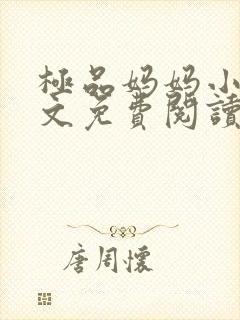 極品妈妈小
文免費閱讀
唐周懷